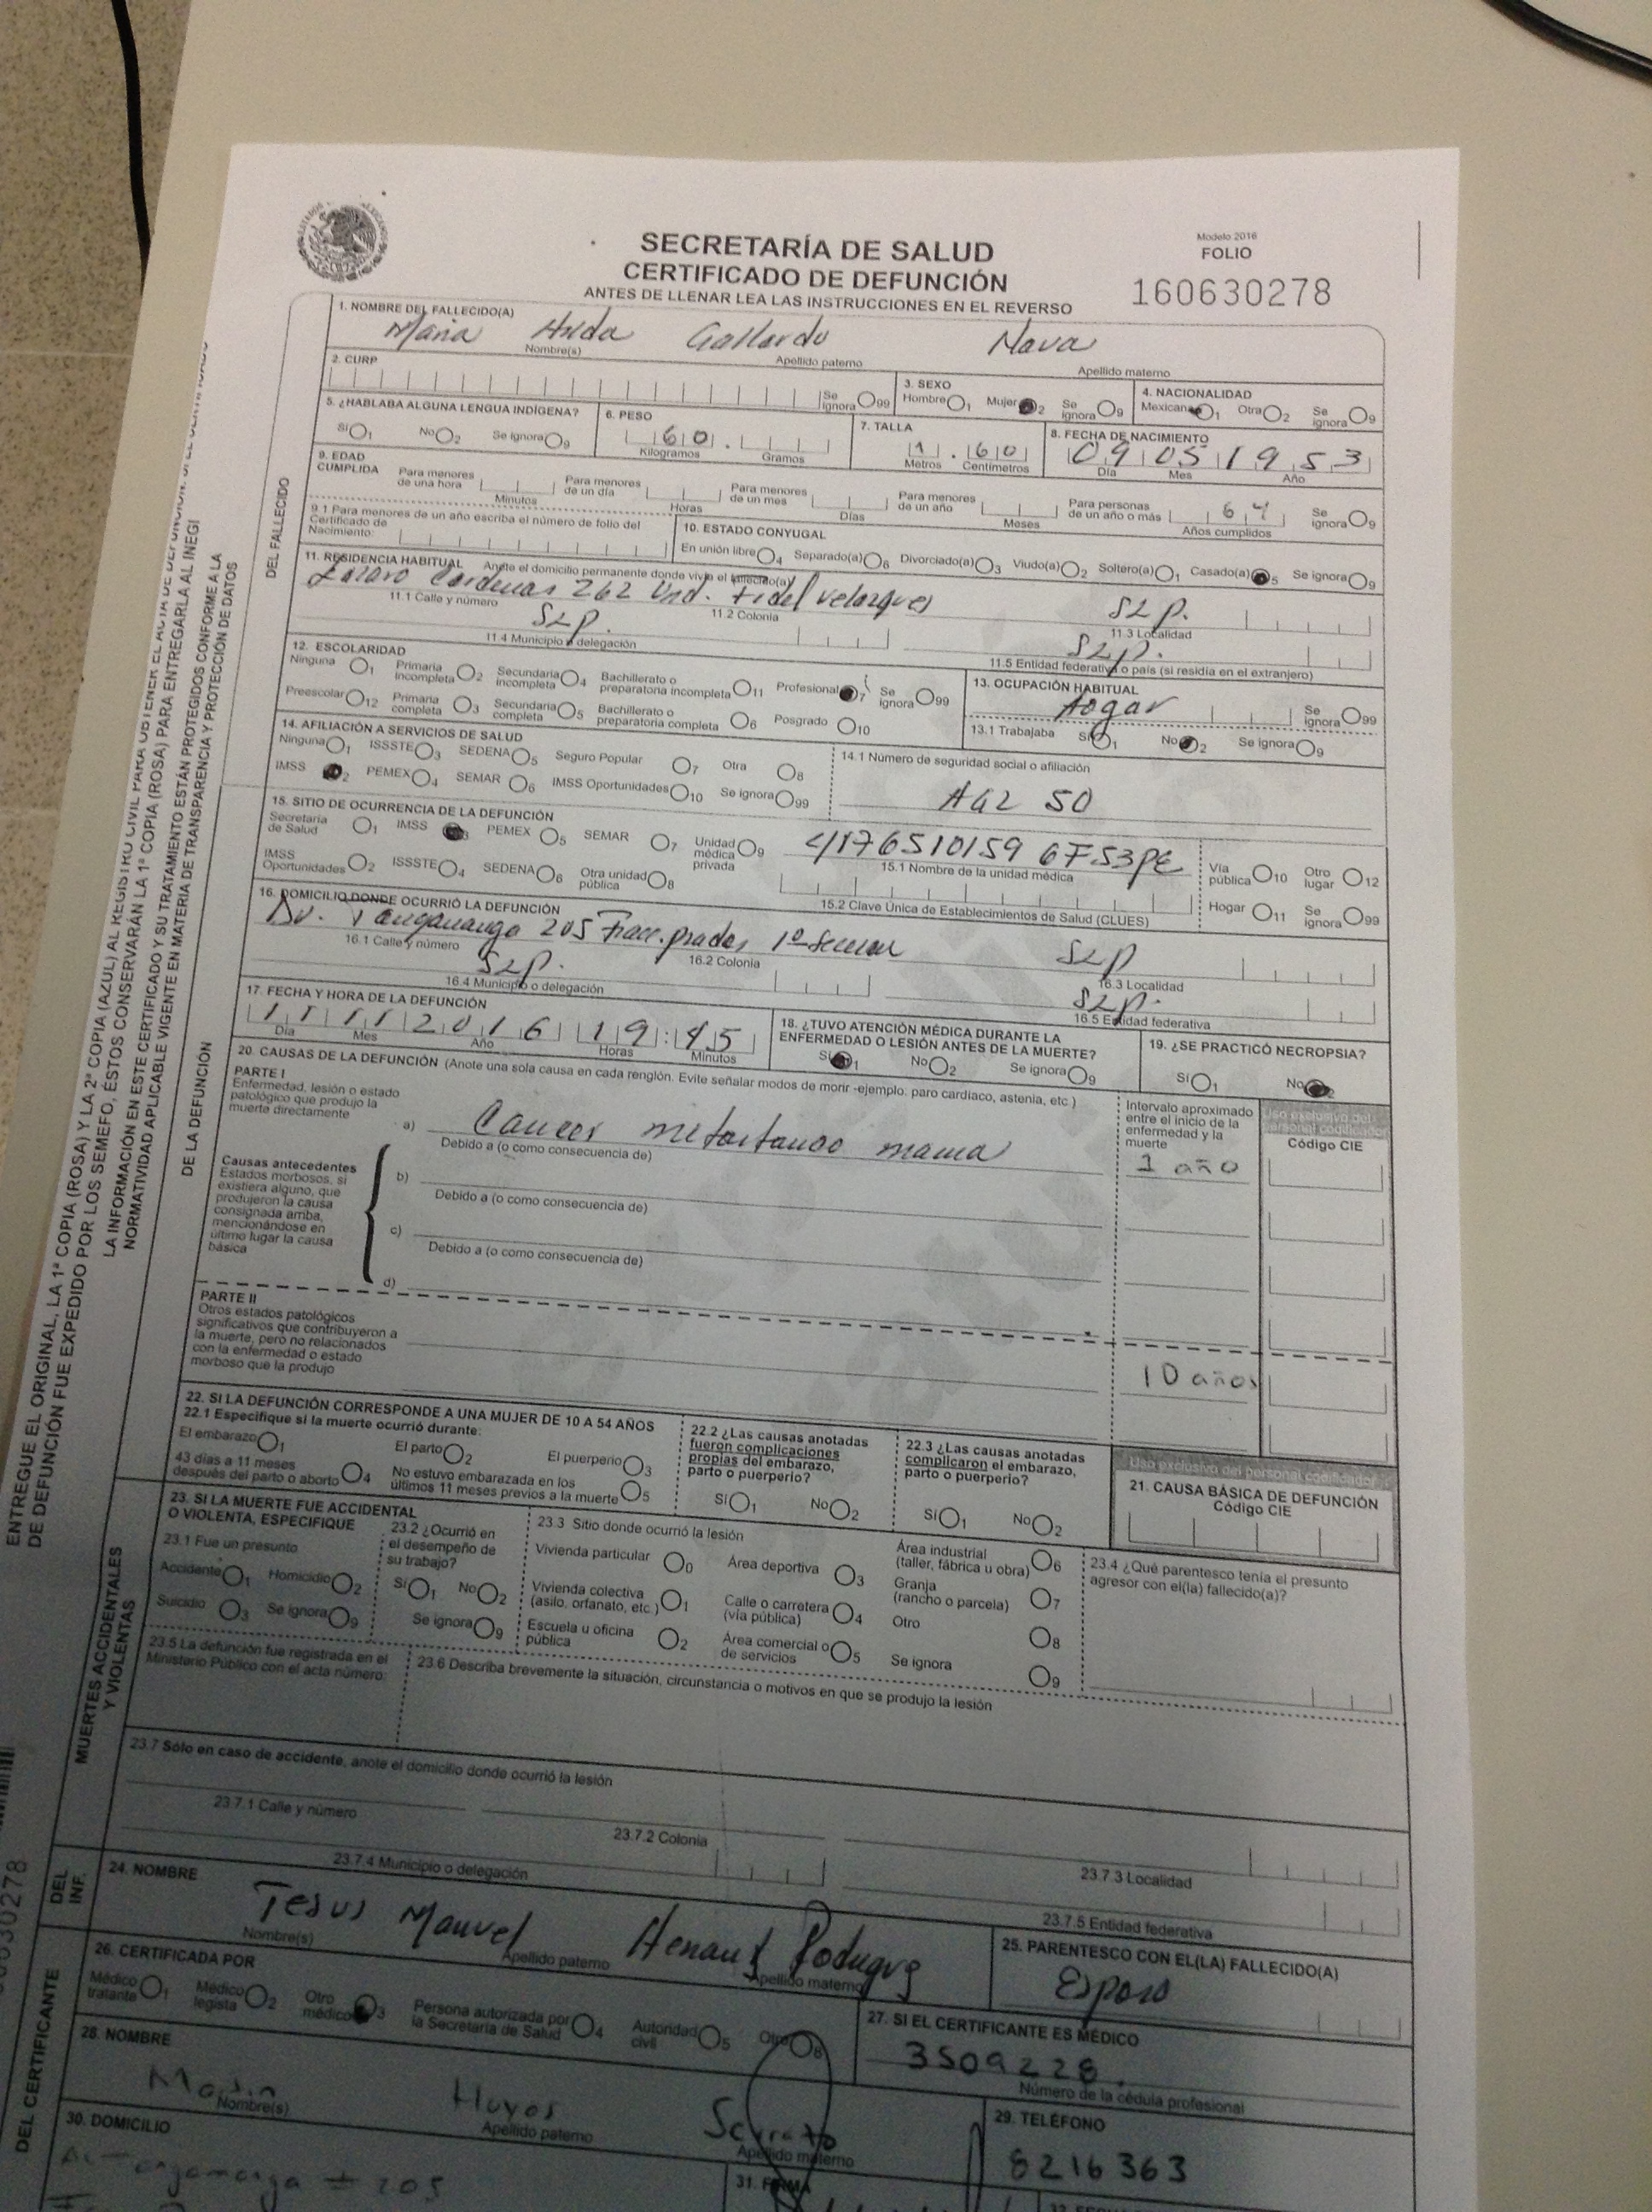 Modelo 2016
SECRETARÍA DE SALUD
FOLIO
CERTIFICADO DE DEFUNCIÓN
160630278
ANTES DE LLENAR LEA LAS INSTRUCCIONES EN EL REVERSO
1. NOMBRE DEL FALLECIDO(A)
Maria Hilda Gallardo Nava
Nombre(s) Apellido paterno Apellido materno
2. CURP Se ignora 99
3. SEXO Hombre 1 Mujer 2 Se ignora 9
4. NACIONALIDAD Mexicana 1 Otra 2 Se ignora 9
5. ¿HABLABA ALGUNA LENGUA INDÍGENA? Sí 1 No 2 Se ignora 9
6. PESO 60 . Kilogramos Gramos
7. TALLA 1 . 60 Metros Centímetros
8. FECHA DE NACIMIENTO 09 05 1953 Día Mes Año
9. EDAD CUMPLIDA
Para menores de una hora Minutos
Para menores de un día Horas
Para menores de un mes Días
Para menores de un año Meses
Para personas de un año o más Años cumplidos
Se ignora 9
9.1 Para menores de un año escriba el número de folio del Certificado de Nacimiento:
10. ESTADO CONYUGAL
En unión libre 4 Separado(a) 6 Divorciado(a) 3 Viudo(a) 2 Soltero(a) 1 Casado(a) 5 Se ignora 9
11. RESIDENCIA HABITUAL Anote el domicilio permanente donde vivía el fallecido(a)
Lázaro Cárdenas 262 Und. Fidel Velazques SLP.
11.1 Calle y número 11.2 Colonia 11.3 Localidad
SLP. SLP.
11.4 Municipio o delegación 11.5 Entidad federativa o país (si residía en el extranjero)
12. ESCOLARIDAD
Ninguna 1 Primaria incompleta 2 Secundaria incompleta 4 Bachillerato o preparatoria incompleta 11 Profesional 7 Se ignora 99
Preescolar 12 Primaria completa 3 Secundaria completa 5 Bachillerato o preparatoria completa 6 Posgrado 10
13. OCUPACIÓN HABITUAL
Hogar Se ignora 99
13.1 Trabajaba Sí 1 No 2 Se ignora 9
14. AFILIACIÓN A SERVICIOS DE SALUD
Ninguna 1 ISSSTE 3 SEDENA 5 Seguro Popular 7 Otra 8
IMSS 2 PEMEX 4 SEMAR 6 IMSS Oportunidades 10 Se ignora 99
14.1 Número de seguridad social o afiliación
HGZ 50
15. SITIO DE OCURRENCIA DE LA DEFUNCIÓN
Secretaría de Salud 1 IMSS 3 PEMEX 5 SEMAR 7 Unidad médica privada 9
IMSS Oportunidades 2 ISSSTE 4 SEDENA 6 Otra unidad pública 8
4176510159 6F53PE
15.1 Nombre de la unidad médica
15.2 Clave Única de Establecimientos de Salud (CLUES)
Vía pública 10 Otro lugar 12
Hogar 11 Se ignora 99
16. DOMICILIO DONDE OCURRIÓ LA DEFUNCIÓN
Av. Tangamanga 205 Fracc. prados 1º SLP
16.1 Calle y número 16.2 Colonia 16.3 Localidad
SLP. SLP.
16.4 Municipio o delegación 16.5 Entidad federativa
17. FECHA Y HORA DE LA DEFUNCIÓN
11 11 2016 19:45
Día Mes Año Horas Minutos
18. ¿TUVO ATENCIÓN MÉDICA DURANTE LA ENFERMEDAD O LESIÓN ANTES DE LA MUERTE?
Sí 1 No 2 Se ignora 9
19. ¿SE PRACTICÓ NECROPSIA?
Sí 1 No 2
20. CAUSAS DE LA DEFUNCIÓN (Anote una sola causa en cada renglón. Evite señalar modos de morir -ejemplo: paro cardíaco, astenia, etc.)
PARTE I
Enfermedad, lesión o estado patológico que produjo la muerte directamente
a) Cancer mama
Debido a (o como consecuencia de)
Intervalo aproximado entre el inicio de la enfermedad y la muerte
1 año
Uso exclusivo del personal codificador
Código CIE
Causas antecedentes
Estados morbosos, si existiera alguno, que produjeron la causa consignada arriba, mencionándose en último lugar la causa básica
b)
Debido a (o como consecuencia de)
c)
Debido a (o como consecuencia de)
d)
PARTE II
Otros estados patológicos significativos que contribuyeron a la muerte, pero no relacionados con la enfermedad o estado morboso que la produjo
10 años
22. SI LA DEFUNCIÓN CORRESPONDE A UNA MUJER DE 10 A 54 AÑOS
22.1 Especifique si la muerte ocurrió durante:
El embarazo 1 El parto 2 El puerperio 3
43 días a 11 meses después del parto o aborto 4 No estuvo embarazada en los últimos 11 meses previos a la muerte 5
22.2 ¿Las causas anotadas fueron complicaciones propias del embarazo, parto o puerperio?
Sí 1 No 2
22.3 ¿Las causas anotadas complicaron el embarazo, parto o puerperio?
Sí 1 No 2
Uso exclusivo del personal codificador
21. CAUSA BÁSICA DE DEFUNCIÓN
Código CIE
23. SI LA MUERTE FUE ACCIDENTAL O VIOLENTA, ESPECIFIQUE
23.1 Fue un presunto
Accidente 1 Homicidio 2
Suicidio 3 Se ignora 9
23.2 ¿Ocurrió en el desempeño de su trabajo?
Sí 1 No 2
Se ignora 9
23.3 Sitio donde ocurrió la lesión
Vivienda particular 0 Área deportiva 3 Área industrial (taller, fábrica u obra) 6
Vivienda colectiva (asilo, orfanato, etc.) 1 Calle o carretera (vía pública) 4 Granja (rancho o parcela) 7
Escuela u oficina pública 2 Área comercial o de servicios 5 Otro 8
Se ignora 9
23.4 ¿Qué parentesco tenía el presunto agresor con el(la) fallecido(a)?
23.5 La defunción fue registrada en el Ministerio Público con el acta número:
23.6 Describa brevemente la situación, circunstancia o motivos en que se produjo la lesión
23.7 Sólo en caso de accidente, anote el domicilio donde ocurrió la lesión
23.7.1 Calle y número 23.7.2 Colonia 23.7.3 Localidad
23.7.4 Municipio o delegación 23.7.5 Entidad federativa
24. NOMBRE
Jesus Manuel
Nombre(s) Apellido paterno Apellido materno
25. PARENTESCO CON EL(LA) FALLECIDO(A)
Esposo
26. CERTIFICADA POR
Médico tratante 1 Médico legista 2 Otro médico 3 Persona autorizada por la Secretaría de Salud 4 Autoridad civil 5 Otro 8
27. SI EL CERTIFICANTE ES MÉDICO
3509228
Número de la cédula profesional
28. NOMBRE
Hoyos Serrato
Nombre(s) Apellido paterno Apellido materno
29. TELÉFONO
8216363
30. DOMICILIO
Av Tangamanga # 205
31. FIRMA
DEL FALLECIDO
DE LA DEFUNCIÓN
MUERTES ACCIDENTALES Y VIOLENTAS
DEL INF.
DEL CERTIFICANTE
LA INFORMACIÓN EN ESTE CERTIFICADO Y SU TRATAMIENTO ESTÁN PROTEGIDOS CONFORME A LA
NORMATIVIDAD APLICABLE VIGENTE EN MATERIA DE TRANSPARENCIA Y PROTECCIÓN DE DATOS